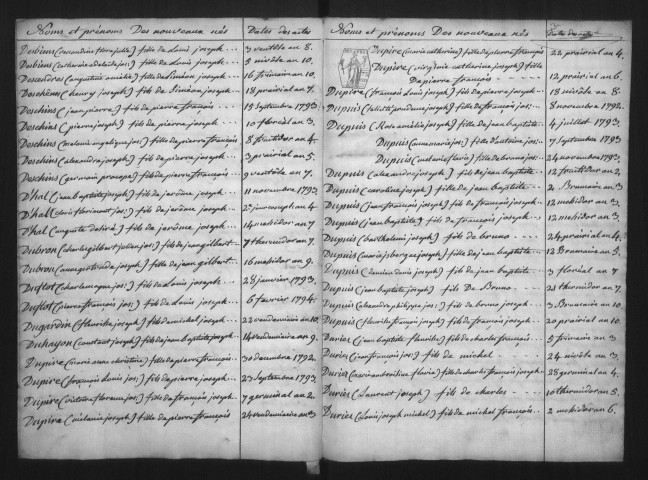 Noms et prénoms Des nouveaux nés Dates des actes
Desbiens fille de Louis joseph 3 ventôse an 8.
Desbiens fille de Louis joseph 5 nivôse an 10.
Descendres (augustine amélie) fille de Siméon joseph 16 frimaire an 10.
Deschins (henry joseph) fils de Siméon joseph 18 prairial an 7.
Deschins (jean pierre) fils de pierre françois 18 Septembre 1793
Deschins (pierre joseph) fils de pierre françois an 3.
Deschins (melanie angelique jos:) fille de pierre françois 8 fructidor an 4.
Deschins (alexandre joseph) fils de pierre françois 3 prairial an 5.
Deschins (germain procope) fils de pierre françois 9 ventôse an 7.
D'hal (jean baptiste joseph) fils de jerôme joseph 11 novembre 1793.
D'hal fils de jerôme joseph an 4
D'hal (auguste désiré) fils de jerôme joseph 14 messidor an 7
Dubron (charles gilbert julien jos:) fils de jean gilbert 7 thermidor an 7.
Dubron fille de jean gilbert 16 messidor an 9.
Duflot (charlemagne jos:) fils de Louis joseph 28 janvier 1793.
Duflot (pierre françois jos:) fils de Louis joseph 6 fevrier 1794.
Dugardin (fleurice joseph) fils de michel joseph 22 vendemiaire an 10.
Duhayon (constant joseph) fils de jean baptiste joseph 14 vendemiaire an 9.
Dupire (marie anne christine) fille de pierre françois 30 decembre 1792.
Dupire (françois Louis jos:) fils de pierre françois 23 Septembre 1793
Dupire (victoire florence jos:) fille de pierre françois 7 germinal an 2.
Dupire (mélanie joseph) fille de pierre françois 24 vendemiaire an 3
Noms et prénoms Des nouveaux nés Dates des actes
Dupire (marie catherine) fille de pierre françois 22 prairial an 4.
Dupire (virginie catherine joseph) fille
De pierre françois 12 prairial an 6.
Dupire (françois joseph) fils de pierre françois 18 nivôse an 8.
Dupuis joseph) fille de françois jos: 8 novembre 1792.
Dupuis (Rose amélie joseph) fille de jean baptiste 4 juillet 1793.
Dupuis jos:) fille d'antoine jos: 7 septembre 1793
Dupuis jos:) fils de bruno jos: 24 novembre 1793.
Dupuis (alexandre joseph) fils de jean baptiste 12 fructidor an 2.
Dupuis (caroline joseph) fille de jean baptiste 2 Brumaire an 3.
Dupuis (jean françois jos:) fils de françois jos: 12 messidor an 3.
Dupuis (jean baptiste) fils de françois joseph 12 messidor an 3.
Dupuis (barthelemi joseph) fils de bruno 24 prairial an 4.
Dupuis joseph) fille de jean baptiste 12 Brumaire an 5.
Dupuis (damien denis joseph) fils de jean baptiste 3 floréal an 7
Dupuis (jean baptiste joseph) fils De Bruno 21 thermidor an 7
Dupuis (alexandre philippe jos:) fils de bruno joseph 3 Brumaire an 10.
Dupuis (fleurile françois joseph) fils de françois joseph 20 prairial an 10.
Durier (jean baptiste fleurile) fils de charles françois 5 frimaire an 3.
Durier (jean françois jos:) fils de michel 24 nivôse an 3.
Durier flavie) fille de charles françois joseph 28 germinal an 4.
Durier (Laurent joseph) fils de charles 10 thermidor an 5.
Durier (Louis joseph michel) fils de michel françois 2 messidor an 6.